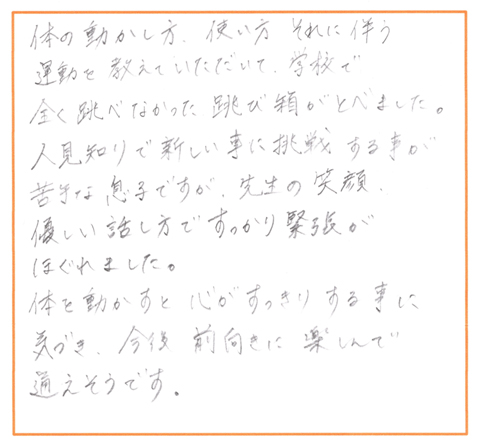 体の動かし方、使い方 それに伴う
運動を教えていただいて、学校で
全く跳べなかった跳び箱がとべました。
人見知りで新しい事に挑戦する事が
苦手な息子ですが、先生の笑顔、
優しい話し方ですっかり緊張が
ほぐれました。
体を動かすと心がすっきりする事に
気づき、今後前向きに楽しんで
通えそうです。